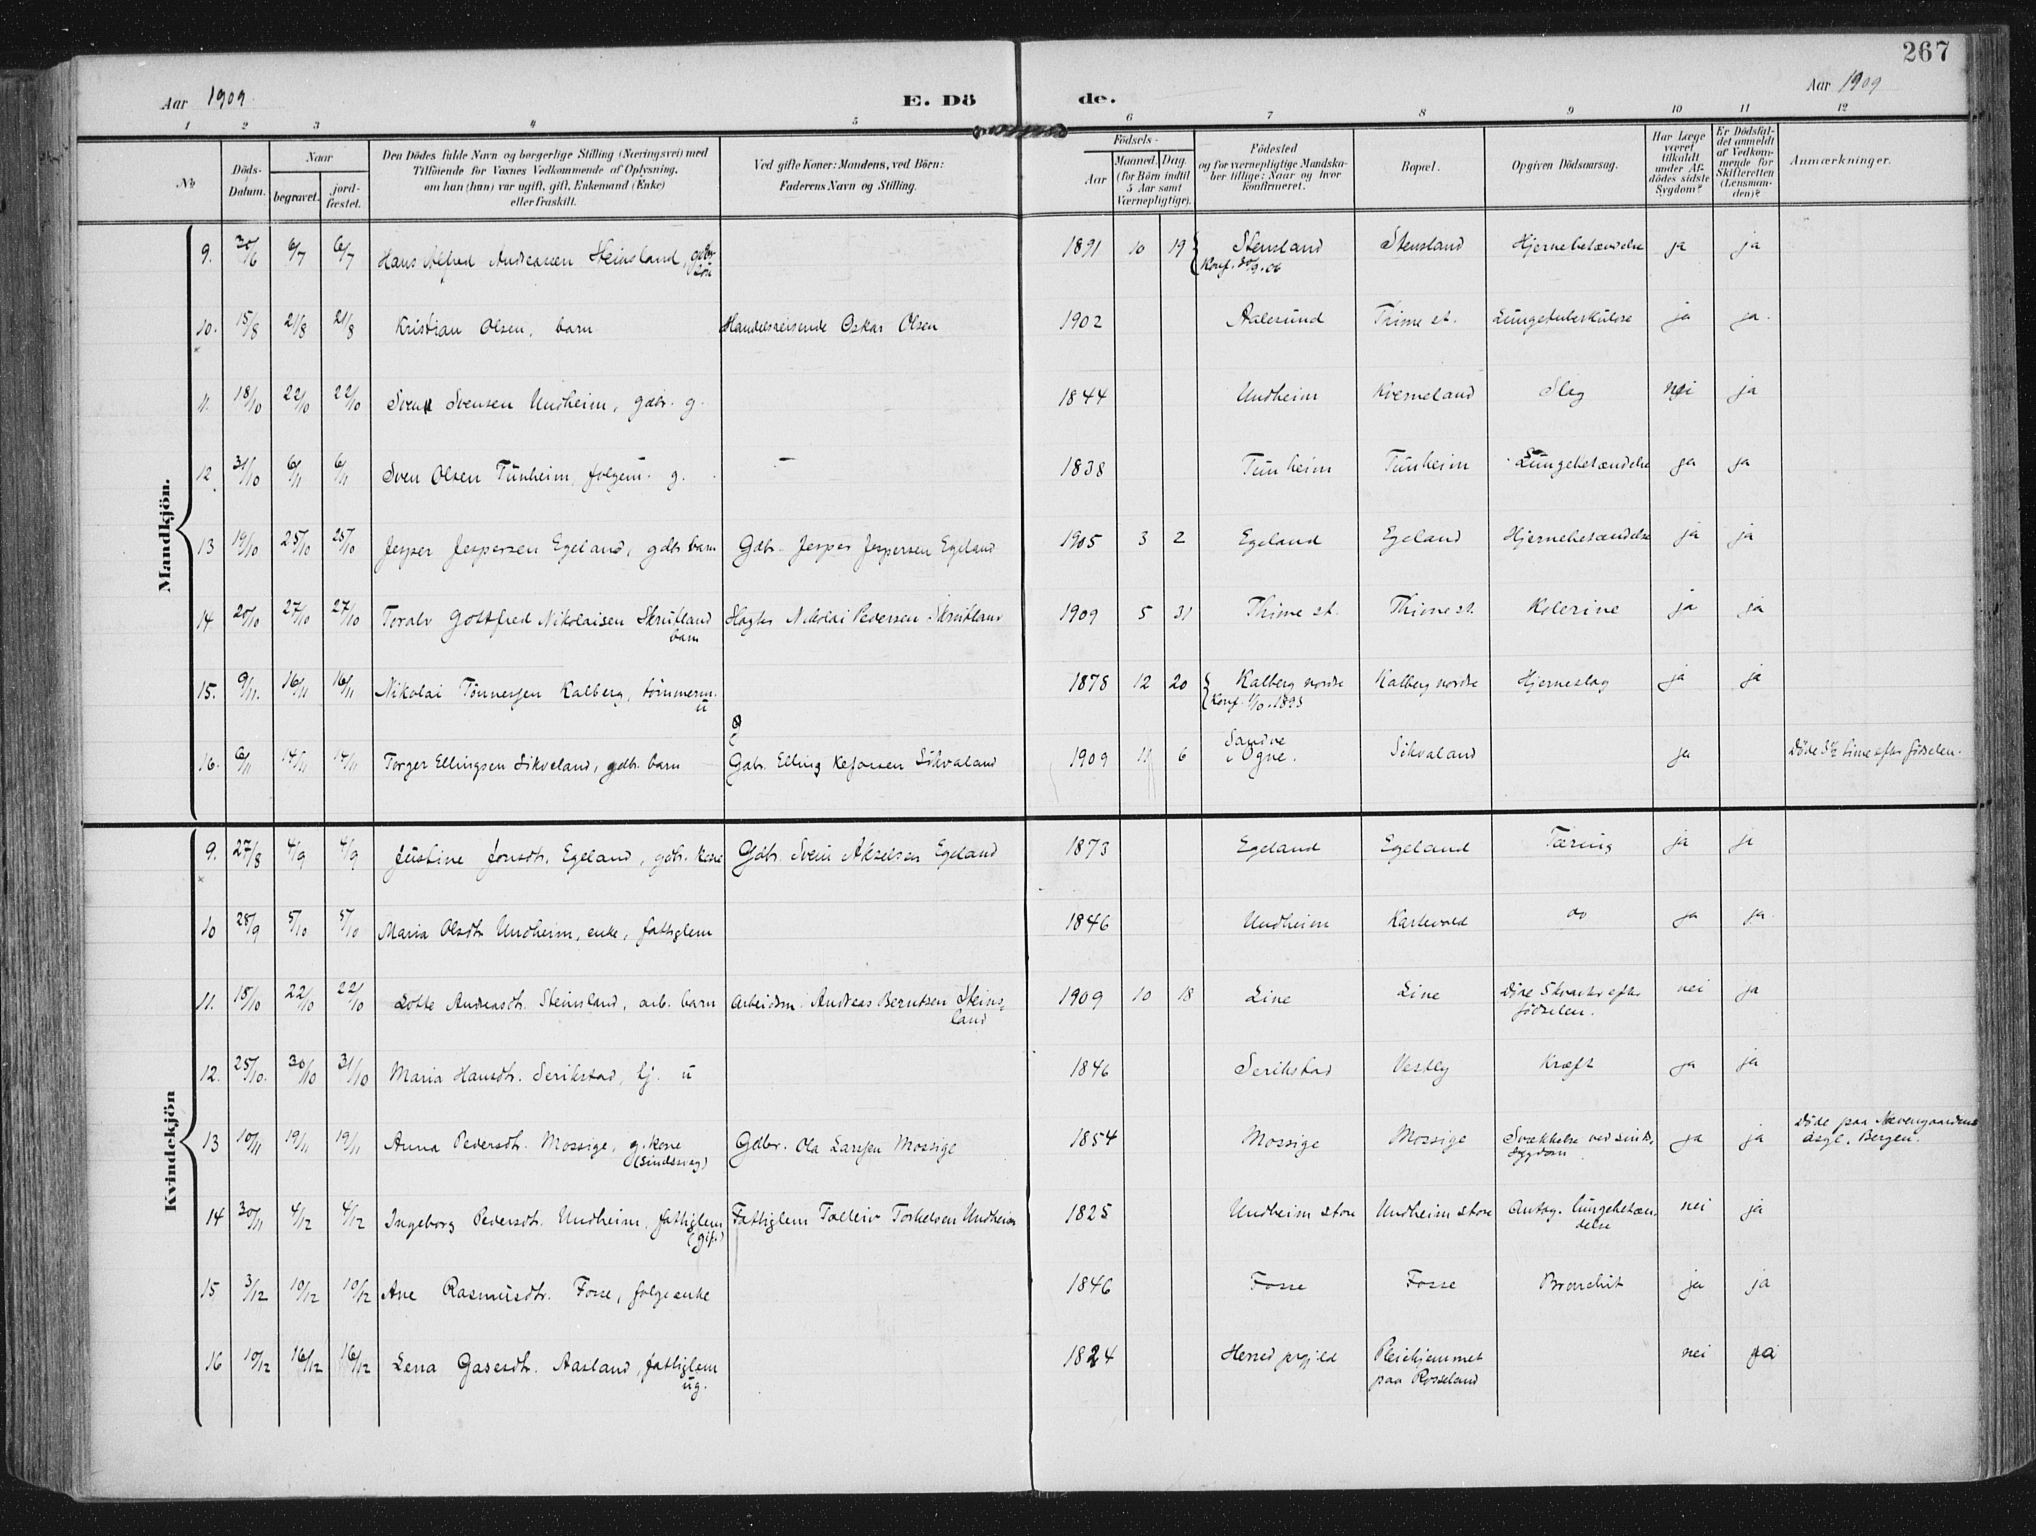 267
Aar 1909
E. Dö de.
Aar 1909
1 2 3 4 5 6 7 8 9 10 11 12
No
Döds-Datum.
Naar
begravet.
jord-fæstet.
Den Dödes fulde Navn og borgerlige Stilling (Næringsvei) med
Tilföiende for Voxnes Vedkommende af Oplysning,
om han (hun) var ugift, gift, Enkemand (Enke)
eller fraskilt.
Ved gifte Koner: Mandens, ved Börn:
Faderens Navn og Stilling.
Födsels-
Aar
Maaned. Dag.
(for Börn indtil
5 Aar samt
Værnepligtige).
Födested
og for værnepligtige Mandska-
ber tillige: Naar og hvor
konfirmeret.
Bopæl.
Opgiven Dödsaarsag.
Har Læge
været
tilkaldt
under Af-
dödes sidste
Sygdom?
Er Dödsfal-
det anmeldt
af Vedkom-
mende for
Skifteretten
(Lensman-
den)?
Anmærkninger.
Mandkjön.
9. 30/6 6/7 6/7 Hans Alfred Andreassen Steinsland, gdbr. sön 1891 10 19 Stensland Stensland Hjernebetændelse ja ja
Konf. 30/9.06
10. 15/8 21/8 21/8 Kristian Olsen, barn Handelsreisende Oskar Olsen 1902 Aalesund Thime st. Lungetuberkulose ja ja
11. 18/10 22/10 22/10 Sven Svensen Undheim, gdbr. g. 1844 Undheim Kverneland Slag nei ja
12 31/10 6/11 6/11 Sven Olsen Tunheim, folgem. g. — 1838 Tunheim Tunheim Lungebetændelse ja ja
13 19/10 25/10 25/10 Jesper Jespersen Egeland, gdbr barn Gdbr. Jesper Jespersen Egeland 1905 3 2 Egeland Egeland Hjernebetændelse ja ja
14. 20/10 27/10 27/10 Toralv Gottfred Nikolaisen Skrutland Nikolai Pedersen Skrutland 1909 5 31 Thime st. Thime st. Kolerine ja ja
barn
15. 9/11. 16/11 16/11 Nikolai Tönnessen Kalberg, tömmerm. 1878 12 20 Kalberg nordre Kalberg nordre Hjerneslag ja ja
u Konf. 1/10.1893
16. 6/11 14/11 14/11 Torger Ellingsen Sikveland, gdb. barn Gdb. Elling Sikvaland 1909 11 6 Sandve Ogne. Sikvaland ja Döde 3½ time efter födselen.
Kvindekjön
9. 27/8 4/9 4/9 Justine Jonsdtr. Egeland, gdb. kone Gdb. Svein Akselsen Egeland 1873 Egeland Egeland Tæring ja ja
10 28/9 5/10 5/10 Maria Olsdtr Undheim, enke, fattiglem 1846 Undheim Kartevold do ja ja
11. 18/10 22/10 22/10 Lotte Andreasdt. Steinsland, arb. barn Arbeidsm. Andreas Berntsen Steins-
land 1909 10 18 Line Line Döde 5 kvarter efter
födselen. nei ja
12. 25/10. 30/10 31/10 Maria Hansdtr. Serikstad, tj. u 1846 Serikstad Vestly Kræft ja ja
13 10/11 19/11 19/11 Anna Pedersdtr. Mossige, g. kone Gdbr. Ola Larssen Mossige 1854 Mossige Mossige Svækkelse ved sinds-
sygdom ja ja Döde paa Neevengaardens
asyl. Bergen.
(sindssyg)
14 30/11 4/12 4/12 Ingeborg Pedersdtr. Undheim, fattiglem Fattiglem Talleiv Torkelsen Undheim 1825 Undheim store Undheim store Antag. lungebetæn-
delse nei ja
(gif.)
15 3/12 10/12 10/12 Ane Rasmusdtr. Fosse, folgeenke 1846 Fosse Fosse Bronchit ja ja
16 10/12 16/12 16/12 Lena Gasesdtr. Aasland, fattiglem 1824 Herred prgjeld Pleiehjemmet
paa Rosseland nei ja
ug.